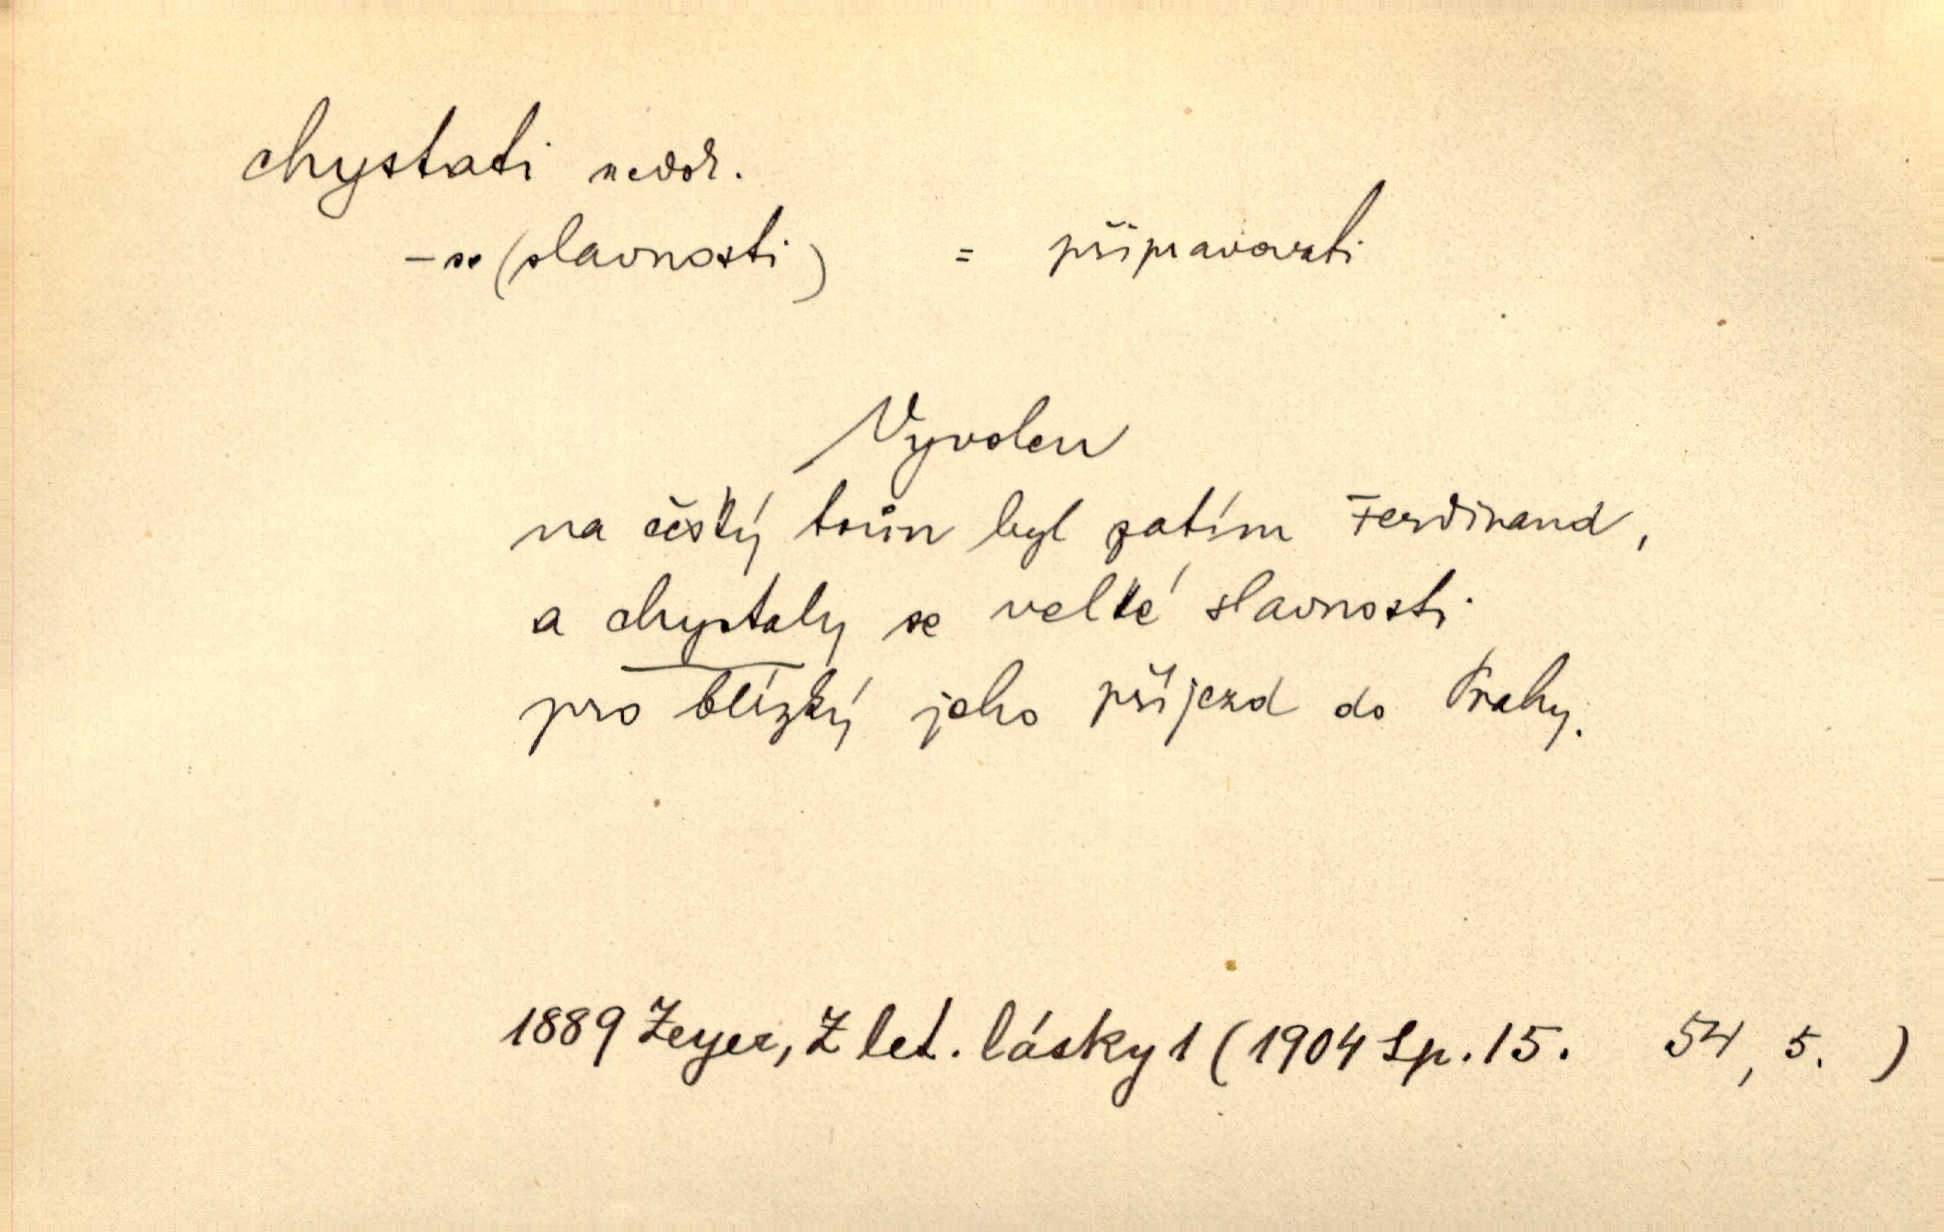 chystati nedok.
– se (slavnosti) = připravovati
Vyvolen
na český trůn byl zatím Ferdinand,
a chystaly se velké slavnosti
pro blízký jeho příjezd do Prahy.
1889 Zeyer, Z let. lásky 1 (1904 Sp. 15. 54, 5. )